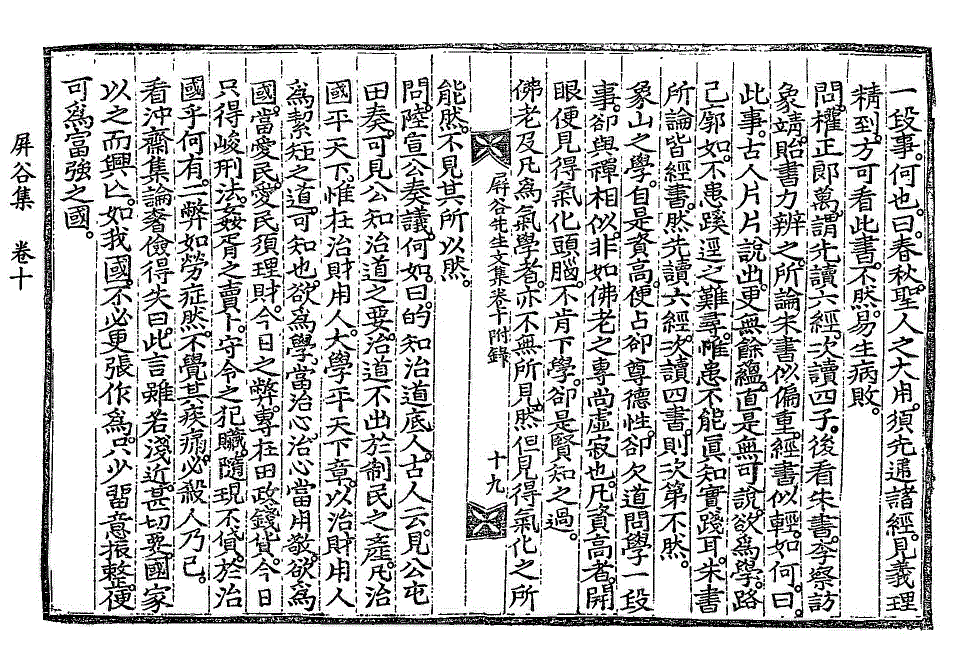 一段事。何也。曰。春秋。聖人之大用。須先通諸經。見義理
精到。方可看此書。不然。易生病敗。
問。權正郎萬。謂先讀六經。次讀四子。後看朱書。李察訪
象靖。貽書力辨之。所論朱書似偏重。經書似輕。如何。曰。
此事。古人片片說出。更無餘蘊。直是無可說。欲爲學。路
已廓如。不患蹊逕之難尋。惟患不能眞知實踐耳。朱書
所論皆經書。然先讀六經。次讀四書。則次第不然。
象山之學。自是資高。便占卻尊德性。卻欠道問學一段
事。卻與禪相似。非如佛老之專尙虛寂也。凡資高者。開
眼便見得氣化頭腦。不肯下學。卻是賢知之過。
佛老及凡爲氣學者。亦不無所見。然但見得氣化之所
屛谷先生文集卷十附錄
十九
能然。不見其所以然。
問。陸宣公奏議。何如。曰。的知治道底人。古人云。見公屯
田奏。可見公知治道之要。治道不出於制民之產。凡治
國平天下。惟在治財用人。大學平天下章。以治財用人
爲絜矩之道。可知也。欲爲學。當治心。治心當用敬。欲爲
國。當愛民。愛民須理財。今日之弊。專在田政錢貨。今日
只得峻刑法。姦胥之賣下。守令之犯贓。隨現不貸。於治
國乎何有。二弊如勞症然。不覺其疾痛。必殺人乃已。
看沖齋集論奢儉得失曰。此言雖若淺近。甚切要。國家
以之而興亡。如我國。不必更張作爲。只少留意振整。便
可爲富強之國。
屛谷集 卷十